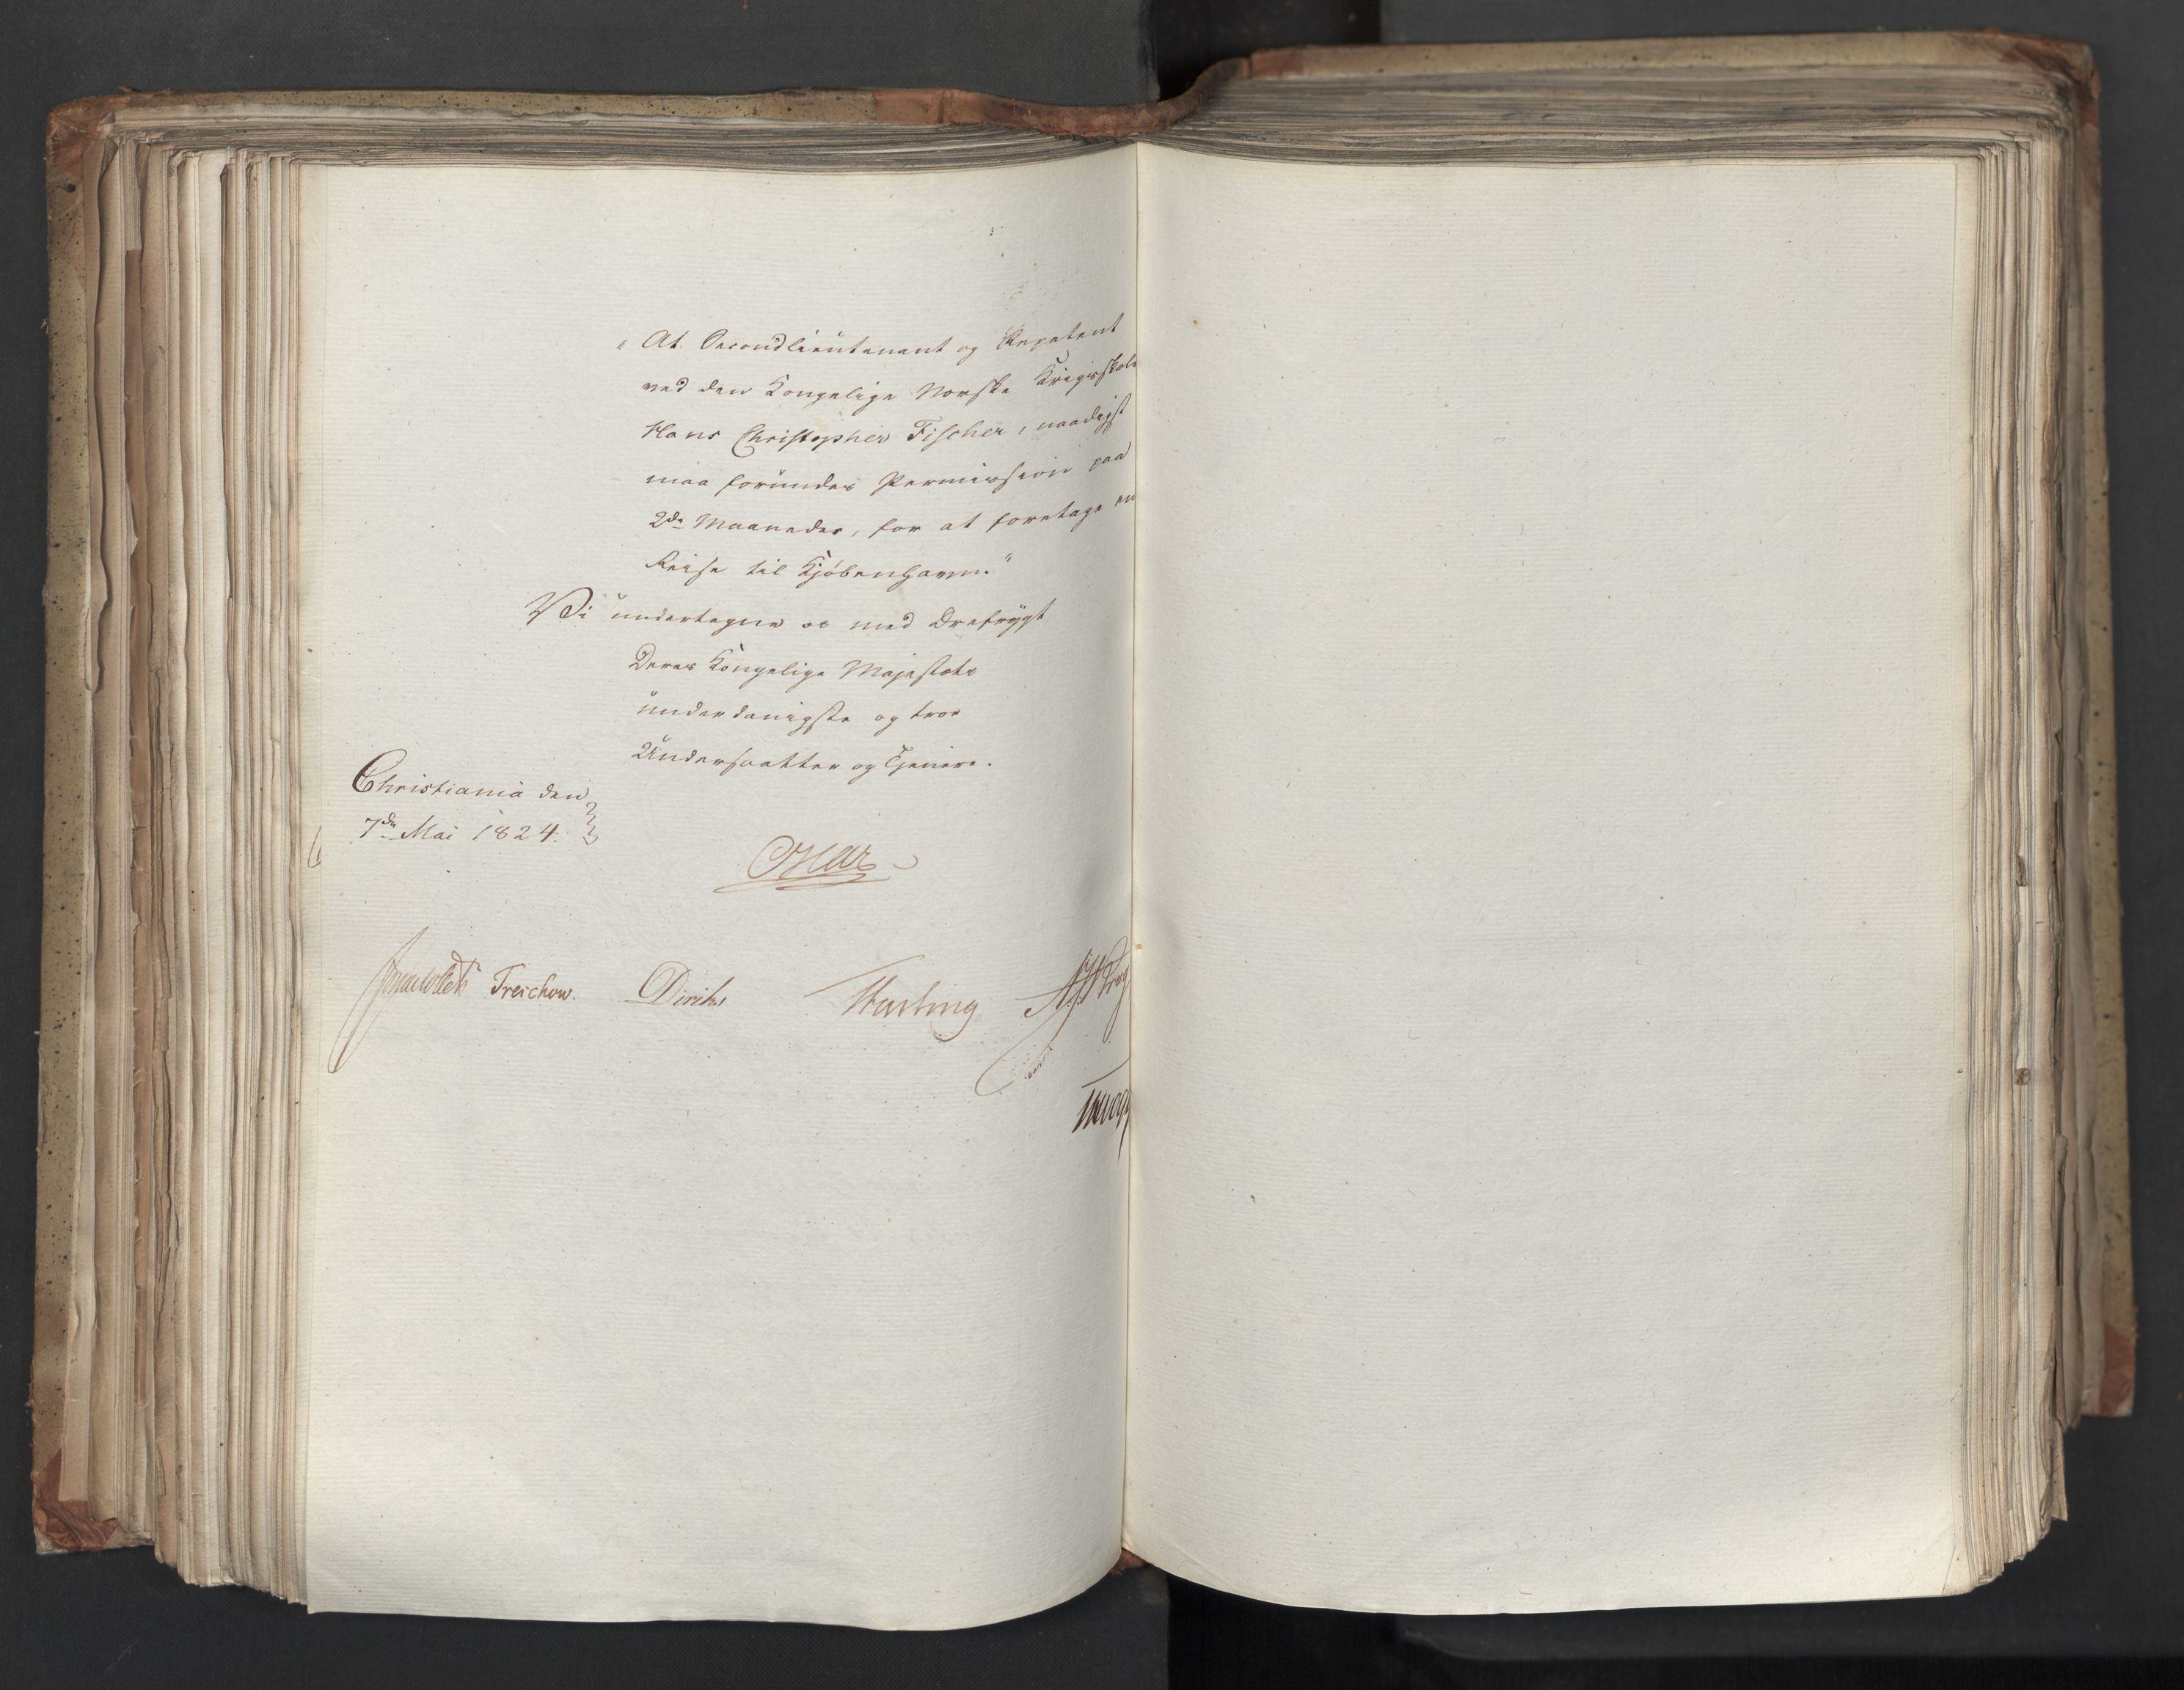 "At Secondlieutenant og Repetent
ved den Kongelige Norske Krigsskole
Hans Christopher Fischer, naadigst
maa forundes Permission paa
2de Maaneder, for at foretage en
Reise til Kjöbenhavn."
Vi undertegne os med Ærefrygt
Deres Kongelige Majestæts
underdanigste og troe
Undersaatter og Tjenere.
Christiania den
7de Mai 1824.
Oscar
Treschow. Diriks